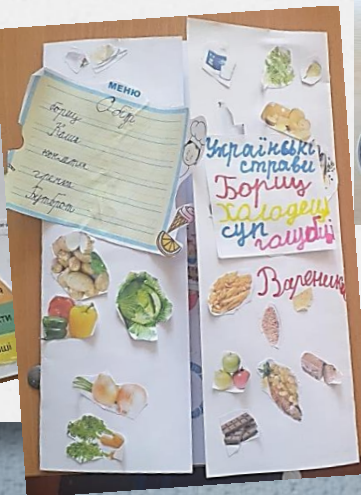 МЕНЮ
Обід
борщ
Каша
котлета
грінки
Бутерброд
Українські
страви
Борщ
Холодець
суп
голубці
Вареники